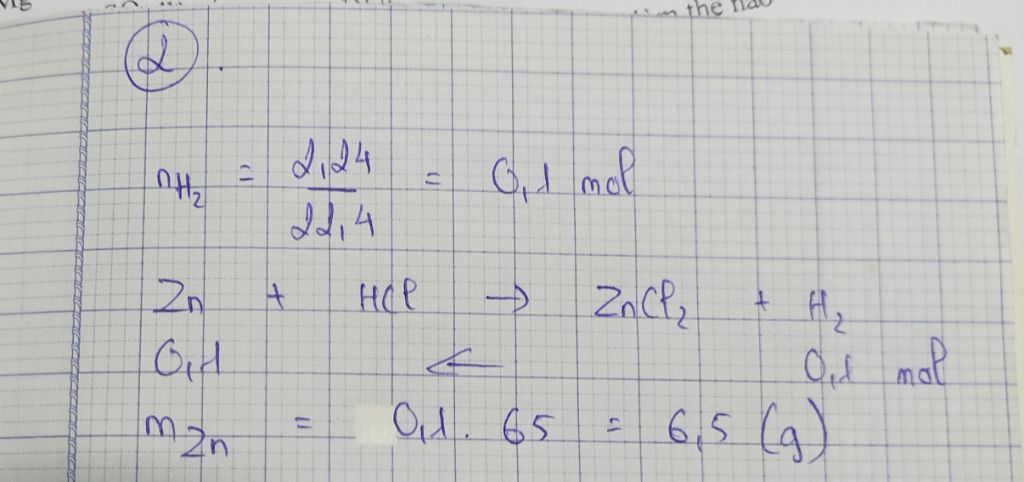 im the
2.
nH₂ = 2,24 / 22,4 = 0,1 mol
Zn + HCl → ZnCl₂ + H₂
0,1 ← 0,1 mol
mZn = 0,1. 65 = 6,5 (g)